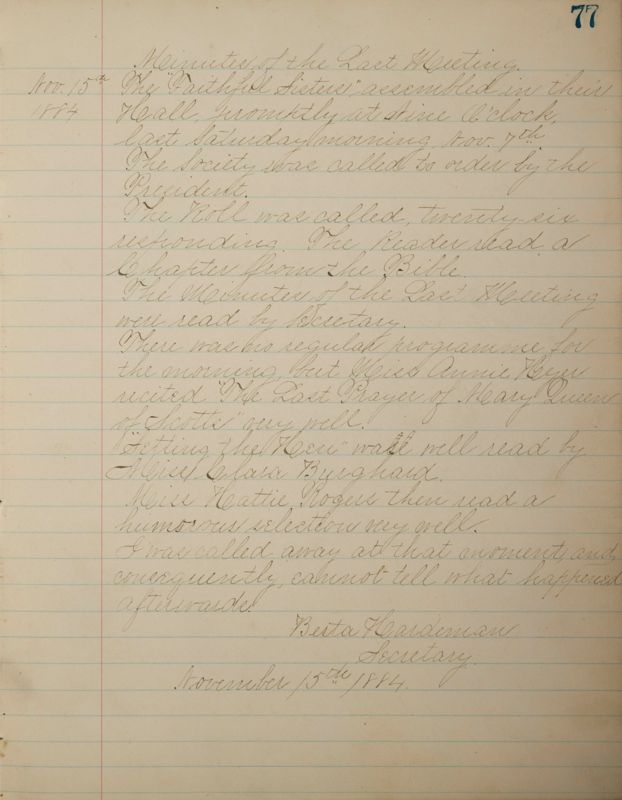 77
Minutes of the Last Meeting.
Nov. 15th The "Faithful Sisters" assembled in their
1884 Hall, promptly at Nine O'clock,
last Saturday morning, Nov. 7th.
The Society was called to order by the
President.
The Roll was called, twenty-six
responding. The Reader read a
Chapter from the Bible.
The Minutes of the Last Meeting
were read by Secretary.
There was no regular programme for
the morning, but Miss Annie
recited "The Last Prayer of Mary Queen
of Scotts" very well.
"Setting the Hen" was well read by
Miss Clara Burghard.
Miss Hattie Rogers then read a
humorous selection very well.
I was called away at that moment, and
consequently, cannot tell what happened
afterwards.
Berta Hardeman
Secretary.
November 15th, 1884.